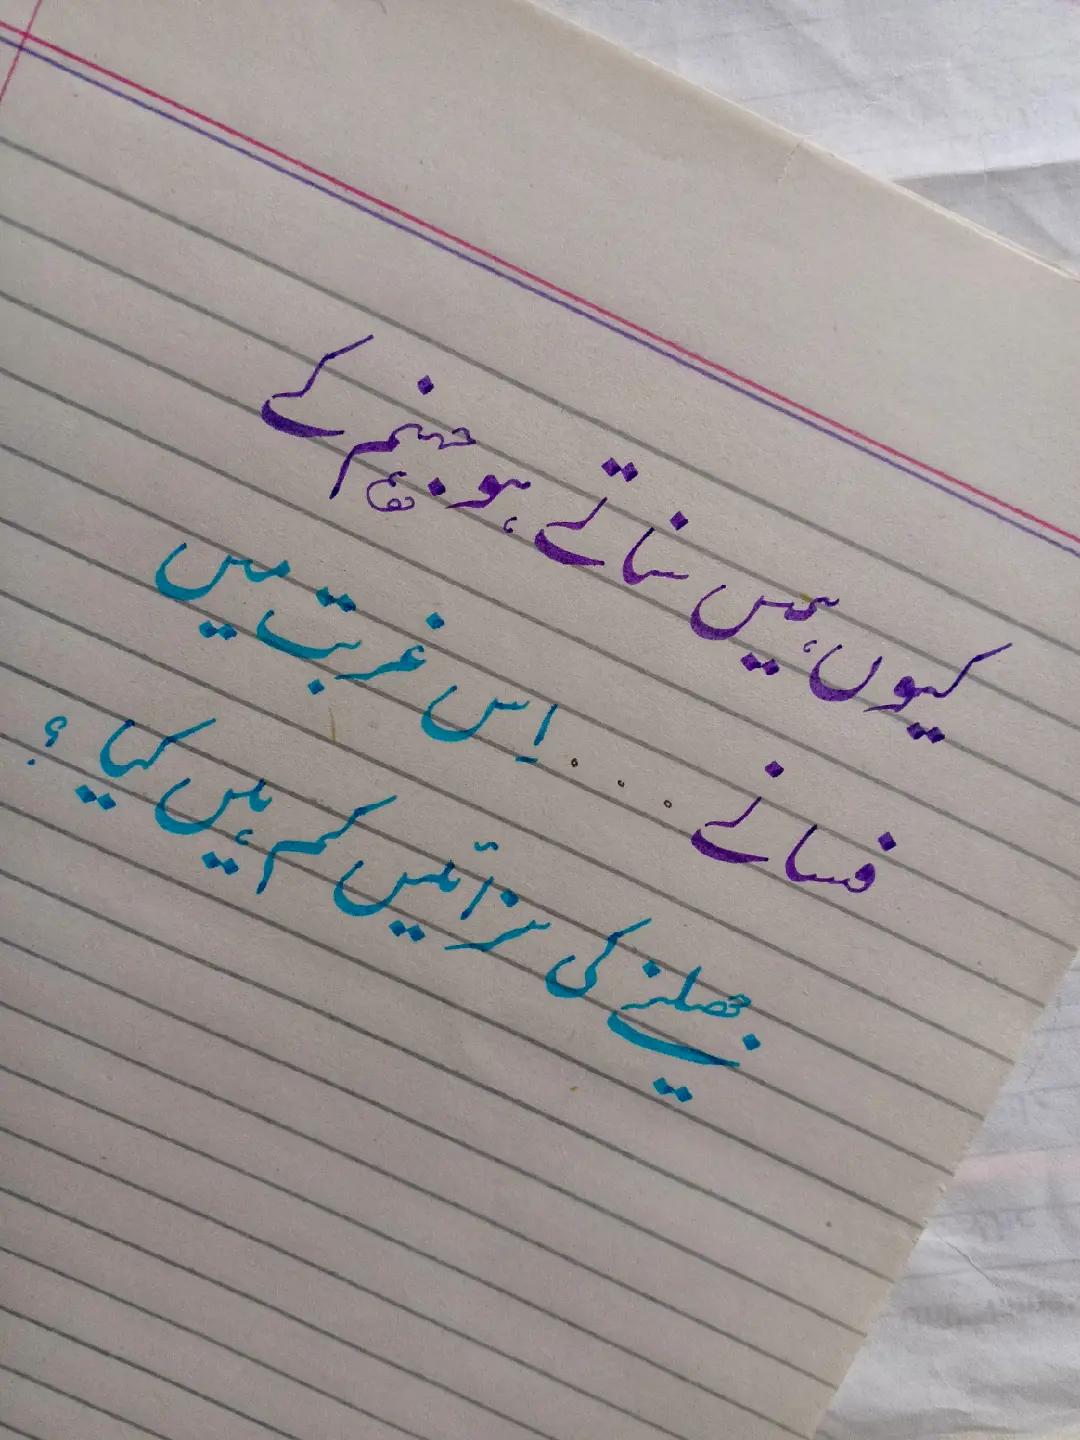 کیوں ہمیں سناتے ہو جہنم کے
فسانے . . . اِس غربت میں
جینے کی سزائیں کم ہیں کیا ؟